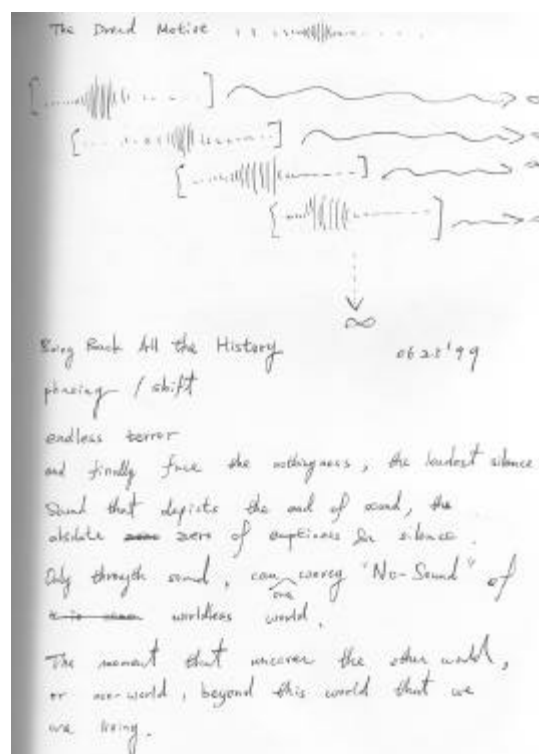 The Dread Motive
∞
Bring Back All the History 06 23 '99
phasing / shift
endless terror
and finally face the nothingness, the loudest silence
Sound that depicts the end of sound, the
absolute zero of emptiness in silence.
Only through sound, can one convey "No-Sound" of
worldless world.
The moment that uncover the other world,
or non-world, beyond this world that we
are living.